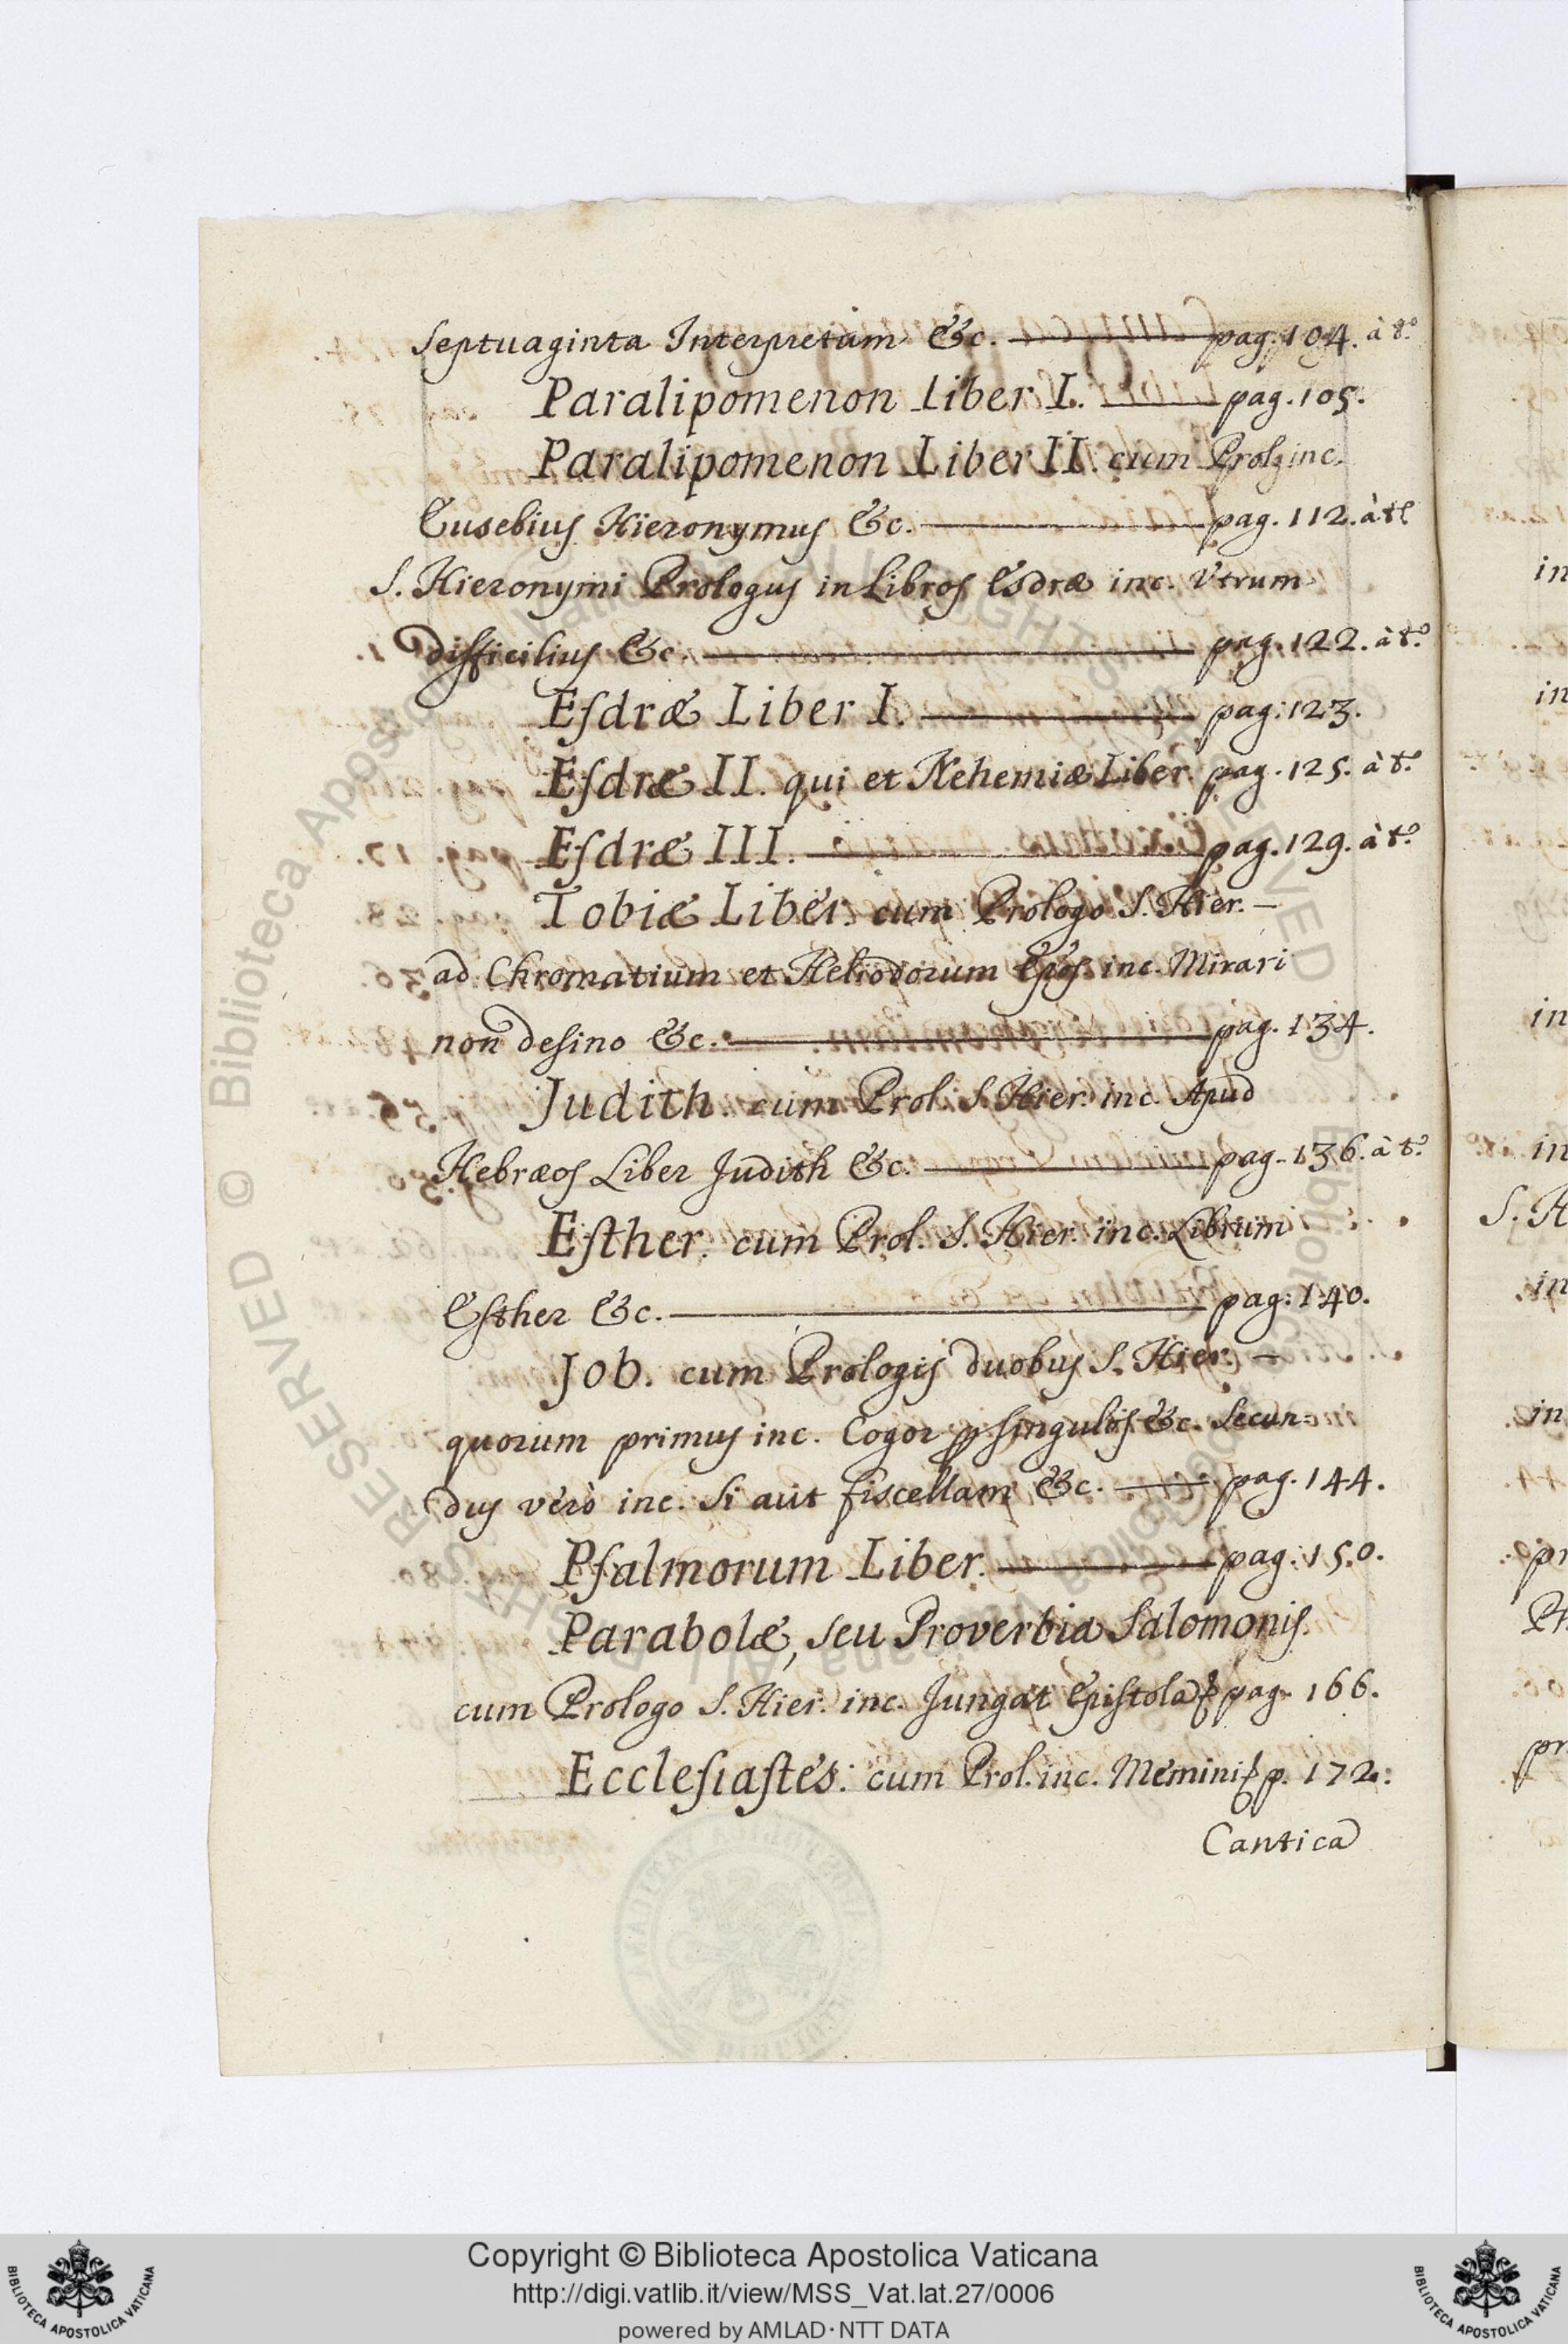 Septuaginta Interpretum &c. pag. 104. à t.º
Paralipomenon Liber I. pag. 105.
Paralipomenon Liber II. cum Prol. inc.
Eusebius Hieronymus &c. pag. 112. à t.º
S. Hieronymi Prologus in Libros Esdræ inc. Vtrum
difficilius &c. pag. 122. à t.º
Esdræ Liber I. pag. 123.
Esdræ II. qui et Nehemiæ Liber. pag. 125. à t.º
Esdræ III. pag. 129. à t.º
Tobiæ Liber. cum Prologo S. Hier. –
ad Chromatium et Heliodorum Epos. inc. Mirari
non desino &c. pag. 134.
Judith. cum Prol. S. Hier. inc. Apud
Hebræos Liber Judith &c. pag. 136. à t.º
Esther. cum Prol. S. Hier. inc. Librum
Esther &c. pag. 140.
Job. cum Prologis duobus S. Hier. –
quorum primus inc. Cogor p singulos &c. Secun=
dus verò inc. Si aut fiscellam &c. pag. 144.
Psalmorum Liber. pag. 150.
Parabolæ, seu Proverbia Salomonis.
cum Prologo S. Hier. inc. Jungat Epistola & pag. 166.
Ecclesiastes. cum Prol. inc. Memini & p. 172.
Cantica
in
in
in
in
S. H
in
in
pr
Pr
pr
Copyright © Biblioteca Apostolica Vaticana
http://digi.vatlib.it/view/MSS_Vat.lat.27/0006
powered by AMLAD·NTT DATA
BIBLIOTECA APOSTOLICA VATICANA
BIBLIOTECA APOSTOLICA VATICANA